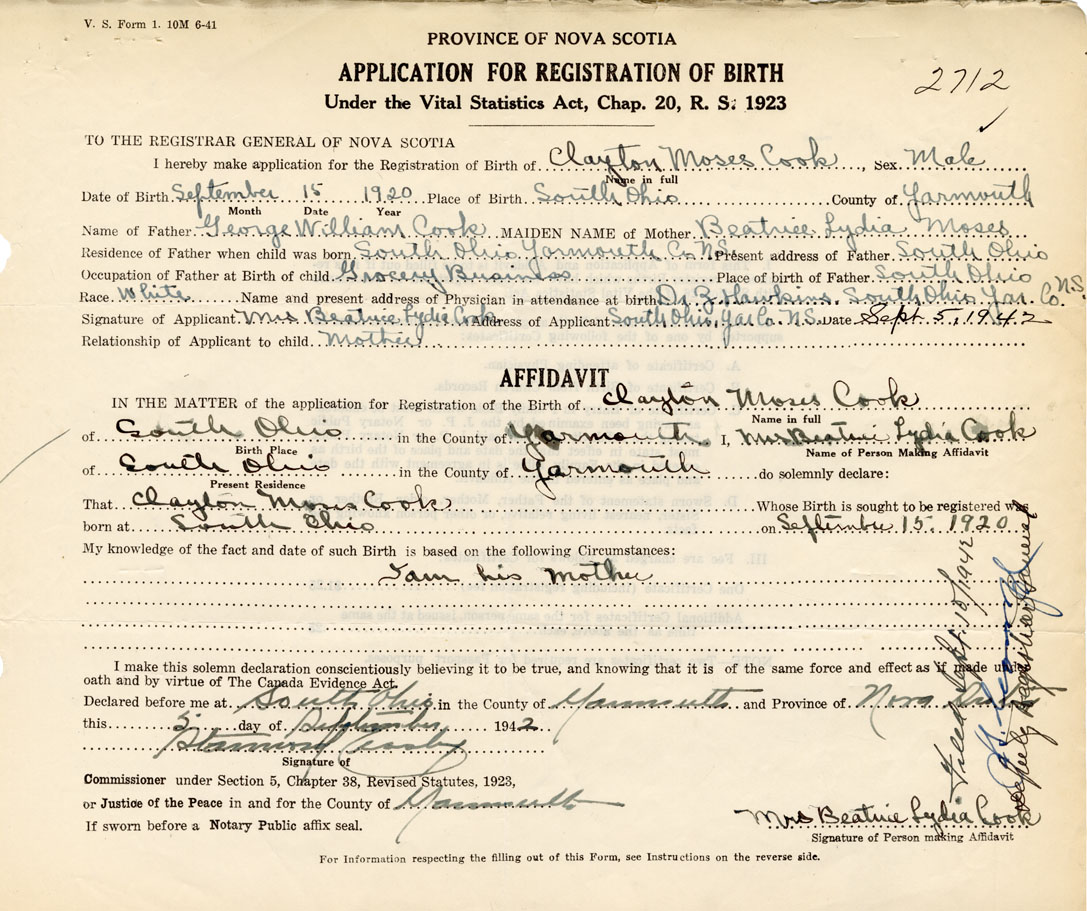 V. S. Form 1. 10M 6-41
PROVINCE OF NOVA SCOTIA
APPLICATION FOR REGISTRATION OF BIRTH
2712
Under the Vital Statistics Act, Chap. 20, R. S. 1923
TO THE REGISTRAR GENERAL OF NOVA SCOTIA
I hereby make application for the Registration of Birth of Clayton Moses Cook, Sex Male
Name in full
Date of Birth September 15 1920 Place of Birth South Ohio County of Yarmouth
Month Date Year
Name of Father George William Cook MAIDEN NAME of Mother Beatrice Lydia Moses
Residence of Father when child was born South Ohio Yarmouth Co. N.S. Present address of Father South Ohio
Occupation of Father at Birth of child Grocery Business Place of birth of Father South Ohio
Race White Name and present address of Physician in attendance at birth Dr Z Hawkins South Ohio Yar. Co. N.S.
Signature of Applicant Mrs Beatrice Lydia Cook Address of Applicant South Ohio, Yar Co. N.S. Date Sept 5, 1942
Relationship of Applicant to child Mother
AFFIDAVIT
IN THE MATTER of the application for Registration of the Birth of Clayton Moses Cook
Name in full
of South Ohio in the County of Yarmouth I, Mrs Beatrice Lydia Cook
Birth Place Name of Person Making Affidavit
of South Ohio in the County of Yarmouth do solemnly declare:
Present Residence
That Clayton Moses Cook Whose Birth is sought to be registered was
born at South Ohio on September 15. 1920
My knowledge of the fact and date of such Birth is based on the following Circumstances:
I am his mother
I make this solemn declaration conscientiously believing it to be true, and knowing that it is of the same force and effect as if made under
oath and by virtue of The Canada Evidence Act.
Declared before me at South Ohio in the County of Yarmouth and Province of Nova
this 5 day of September 1942
Signature of
Commissioner under Section 5, Chapter 38, Revised Statutes, 1923,
or Justice of the Peace in and for the County of Yarmouth
If sworn before a Notary Public affix seal.
Mrs Beatrice Lydia Cook
Signature of Person making Affidavit
For Information respecting the filling out of this Form, see Instructions on the reverse side.
Filed Sept. 10/1942
Deputy Registrar General